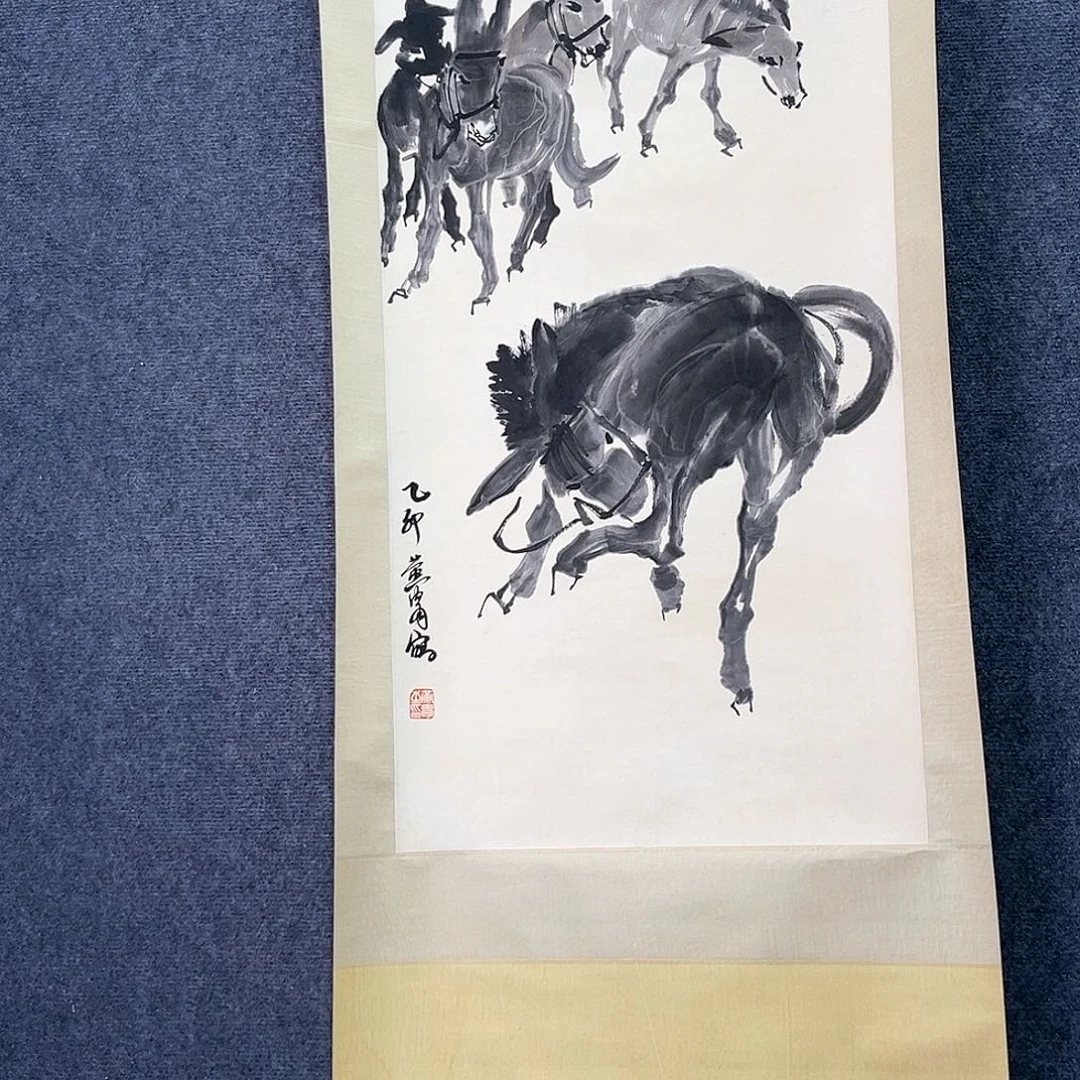 乙卯 黄胄写